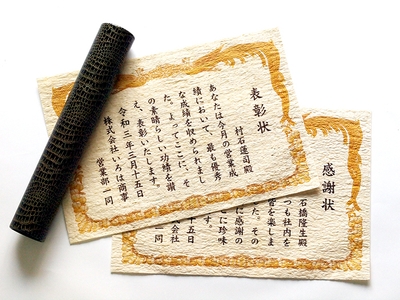 表彰状
村石蓮司殿
あなたは今月の営業成
績において、最も優秀
な成績を収められまし
た。よってここに、そ
の素晴らしい功績を讃
え、表彰いたします。
令和三年三月十五日
株式会社いろは商事
営業部一同
感謝状
石橋隆生殿
つも社内を
皆を楽しま
た。その
に感謝の
に珍味
す。
十五日
会社
一同